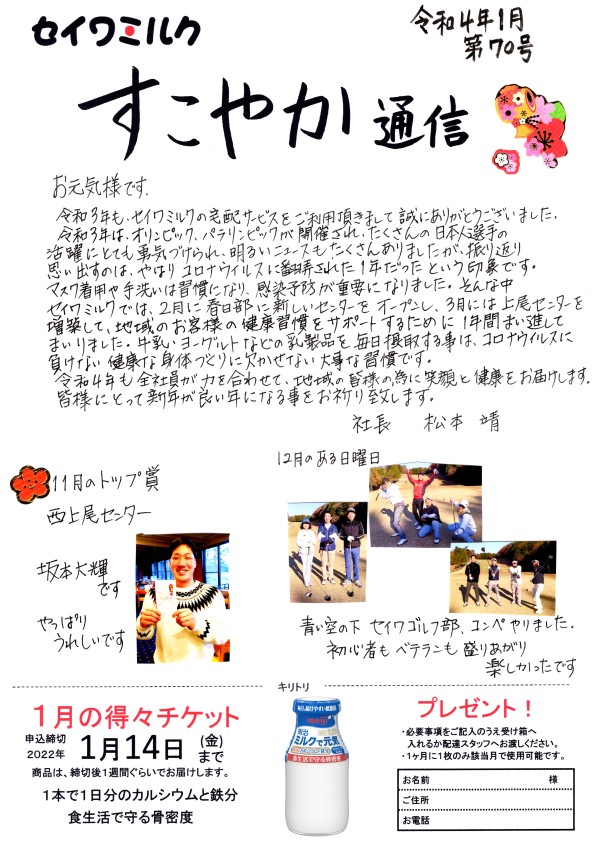 セイワミルク
令和4年1月
第70号
すこやか通信
お元気様です.
令和3年も、セイワミルクの宅配サービスをご利用頂きまして誠にありがとうございました.
令和3年は、オリンピック、パラリンピックが開催され、たくさんの日本人選手の
活躍にとても勇気づけられ、明るいニュースもたくさんありましたが、振り返り
思い出すのは、やはりコロナウイルスに翻弄された1年だったという印象です.
マスク着用や手洗いは習慣になり、感染予防が重要になりました. そんな中
セイワミルクでは、2月に春日部に新しいセンターをオープンし、3月には上尾センターを
増築して、地域のお客様の健康習慣をサポートするために1年間まい進して
まいりました. 牛乳・ヨーグルトなどの乳製品を毎日摂取する事は、コロナウイルスに
負けない健康な身体づくりに欠かせない大事な習慣です.
令和4年も全社員が力を合わせて、地域の皆様の為に笑顔と健康をお届けします.
皆様にとって新年が良い年になる事をお祈り致します。
社長 松本 靖
11月のトップ賞
西上尾センター
坂本大輝
です
やっぱり
うれしいです
12月のある日曜日
青い空の下 セイワゴルフ部、コンペやりました.
初心者もベテランも盛りあがり
楽しかったです
キリトリ
1月の得々チケット
申込締切
2022年 1月14日(金)まで
商品は、締切後1週間ぐらいでお届けします。
1本で1日分のカルシウムと鉄分
食生活で守る骨密度
meiji
明治
ミルクで元気
食生活で守る骨密度
プレゼント！
・必要事項をご記入のうえ受け箱へ
入れるか配達スタッフへお渡しください。
・1ヶ月に1枚のみ該当月で使用可能です。
お名前 様
ご住所
お電話